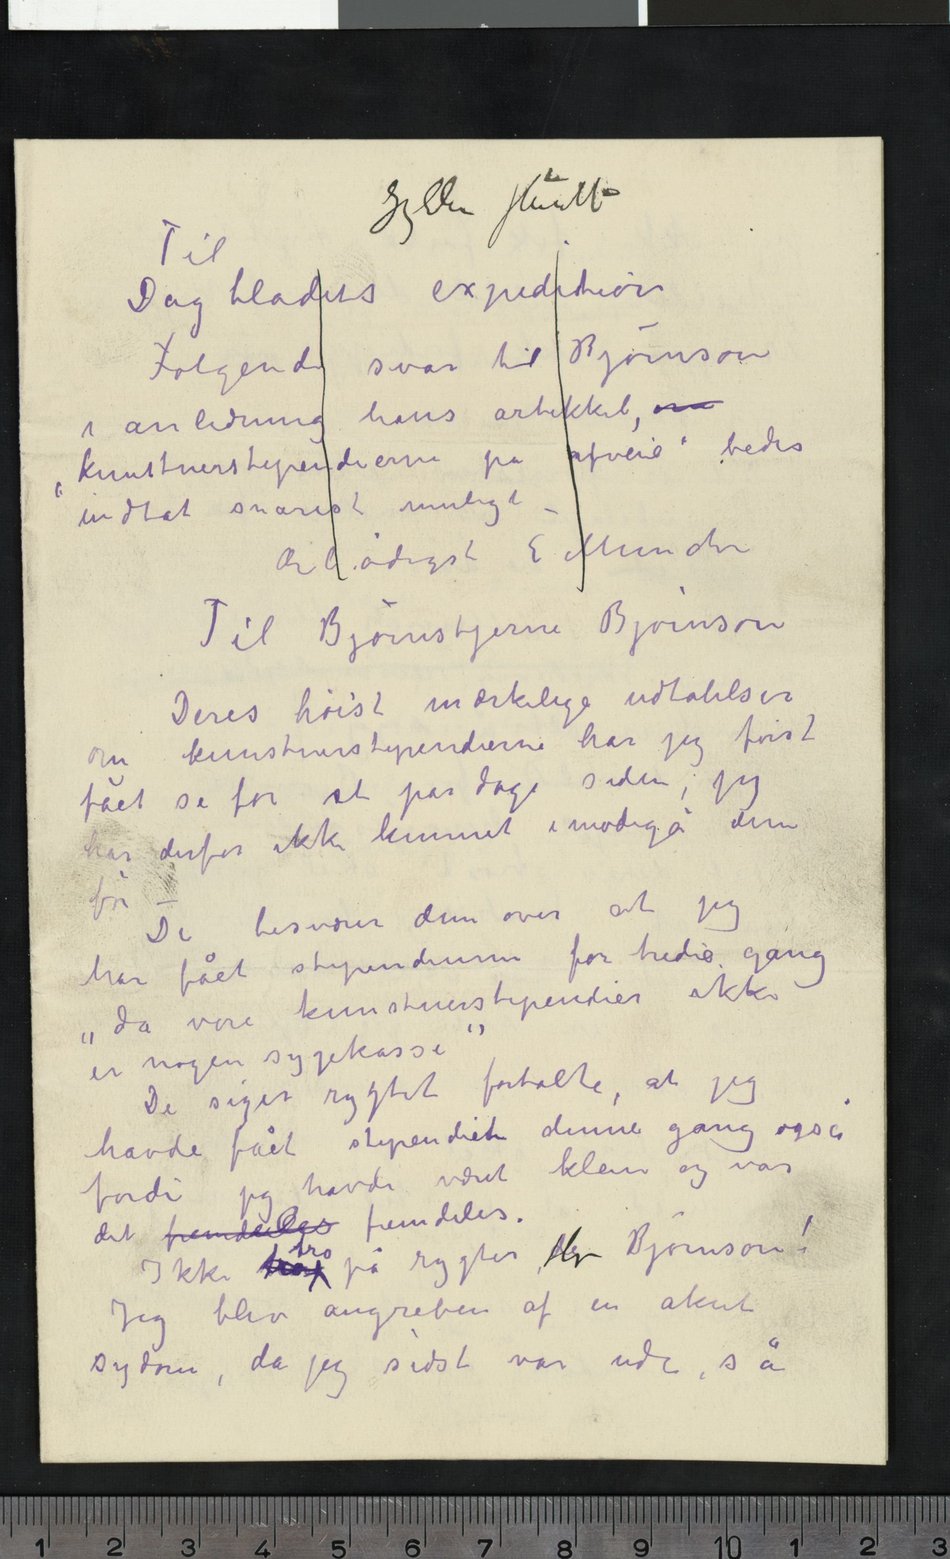 Til
Dagbladets expedition
Følgende svar til Bjørnson
i anledning hans artikkel, om
„kunstnerstipendierne på afveie“ bedes
indtat snarest muligt –
Ærbødigst E Munch
Til Bjørnstjerne Bjørnson
Deres høist mærkelige udtalelser
om kunstnerstipendierne har jeg først
fået se for et par dage siden; jeg
har derfor ikke kunnet imødegå dem
før –
De besværer dem over at jeg
har fået stipendium for tredie gang
„da vore kunstnerstipendier ikke
er nogen sygekasse“
De siger rygtet fortalte, at jeg
havde fået stipendiet denne gang også
fordi jeg havde været klein og var
det fremdeles fremdeles.
Ikke tro på rygter, Hr Bjørnson!
Jeg blev angreben af en akut
sydom, da jeg sidst var ude, så
1 2 3 4 5 6 7 8 9 10 1 2 3